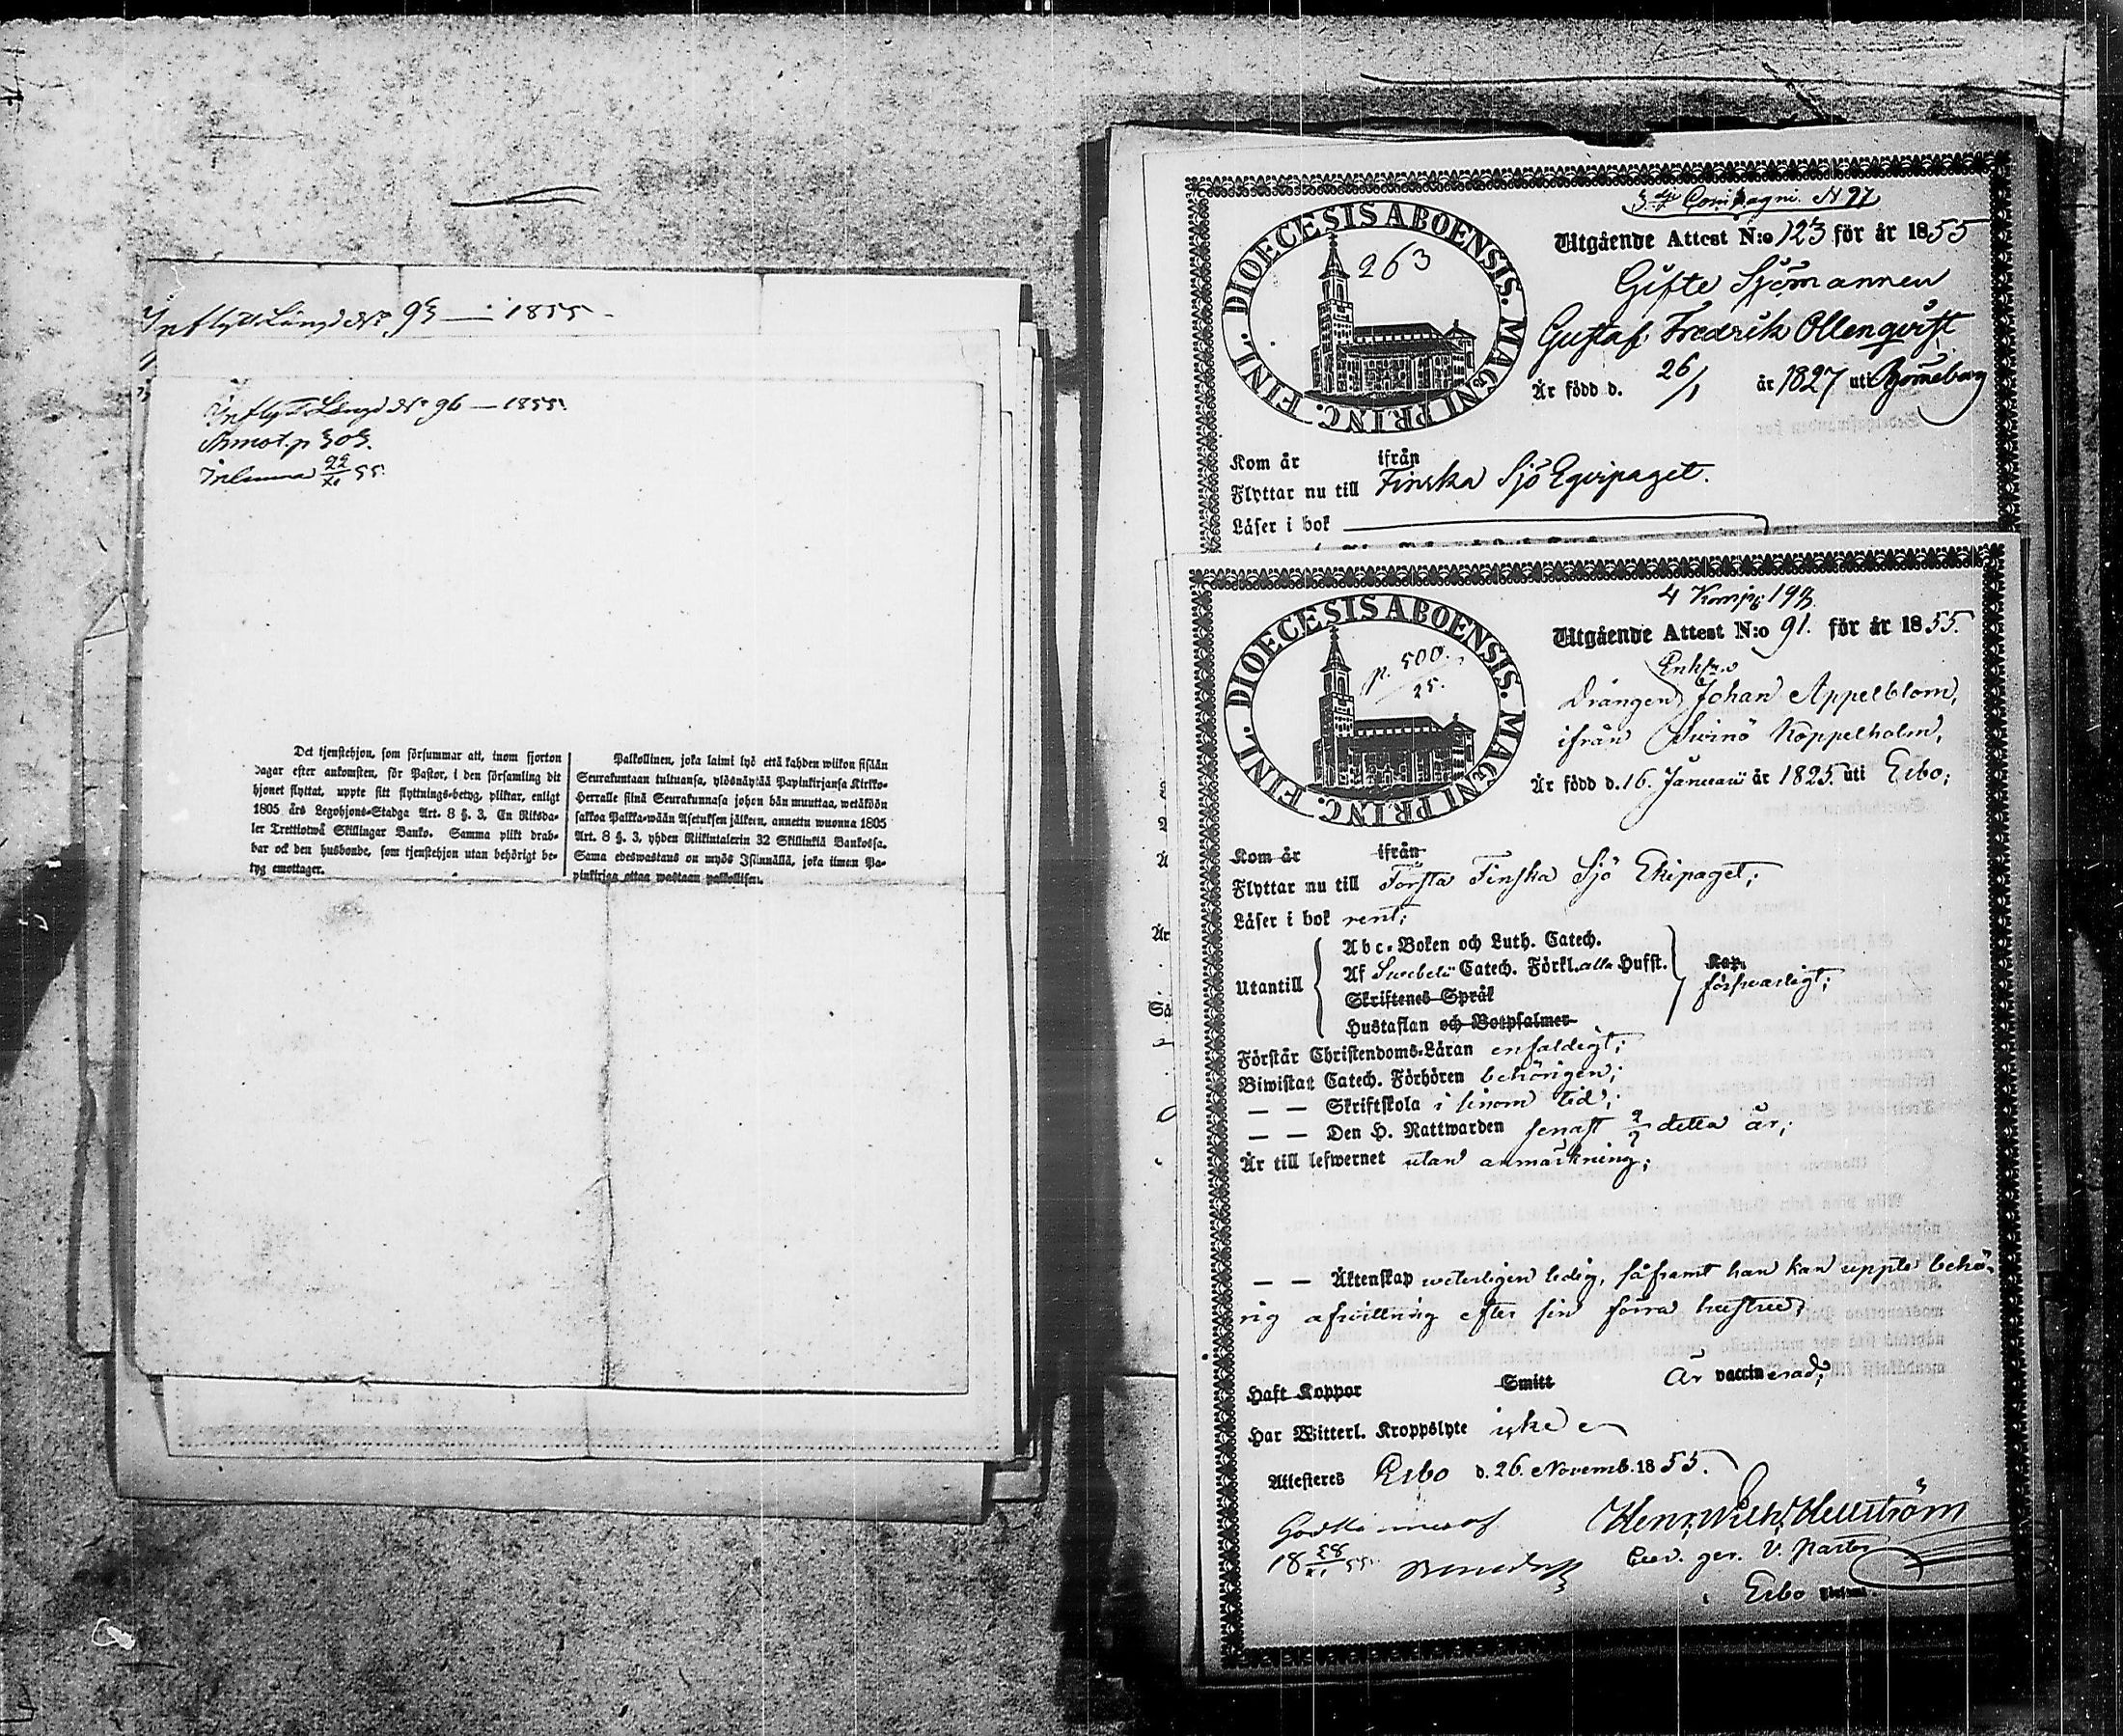 Inflytt. Längd No 95 — 1855.
Inflytt. Längd No 96 — 1855.
Annot. p 303.
55.
Det tjenstehjon, som försummar att, inom fjorton
dagar efter ankomsten, för Pastor, i den församling dit
hjonet flyttat, uppte sitt flyttnings-betyg, pliktar, enligt
1805 års Legohjons-Stadga Art. 8 §. 3, En Riksda-
ler Trettiotwå Skillingar Banko. Samma plikt drab-
bar ock den husbonde, som tjenstehjon utan behörigt be-
tyg emottager.
Palkollinen, joka laimi lyö että kahden wiikon sisään
Seurakuntaan tultuansa, ylösnäyttää Papinkirjansa Kirkko-
Herralle siinä Seurakunnasa johon hän muuttaa, wetäköön
sakkoa Palkka-wään Asetuksen jälkeen, annettu wuonna 1805
Art. 8 §. 3, yhden Riikintalerin 32 Skillinkiä Bankossa.
Sama edeswastaus on myös Isännällä, joka ilman Pa-
pinkirjaa ottaa wastaan palkollisen.
3dje Compagni. N 27
DIOECESIS ABOENSIS. MAGNI PRINC. FINL.
263
Utgående Attest N:o 123 för år 1855
Gifte Sjömannen
Gustaf Fredrik Ollenqvist
Är född d. 26/1 år 1827 uti Björneborg
Kom år ifrån
Flyttar nu till Finska Sjö Eqvipaget.
Läser i bok
4 Komp: 198.
DIOECESIS ABOENSIS. MAGNI PRINC. FINL.
p. 500.
25.
Utgående Attest N:o 91. för år 1855.
Enkl.
Drängen Johan Appelblom,
ifrån Swinö Koppelholm,
Är född d. 16. Januari år 1825 uti Esbo;
Kom år ifrån
Flyttar nu till Första Finska Sjö Ekipaget;
Läser i bok rent;
Utantill
Abc-Boken och Luth. Catech.
Af Swebelii Catech. Förkl. alla Hufst.
Skriftenes Språk
Hustaflan och Botpsalmer
Kap.
förswarligt;
Förstår Christendoms-Läran enfaldigt;
Biwistat Catech. Förhören behörigen;
— — Skriftskola i sinom tid;
— — Den H. Nattwarden senast 9/9 detta år;
Är till lefwernet utan anmärkning;
— — Äktenskap weterligen ledig, såframt han kan uppte behö-
rig afwittring efter sin förra hustru;
Haft Koppor Smitt Är vaccinerad;
Har Witterl. Kroppslyte icke
Attesteres Esbo d. 26. Novemb. 1855.
Henr. Wilh. Hellström
v. Pastor
i Esbo